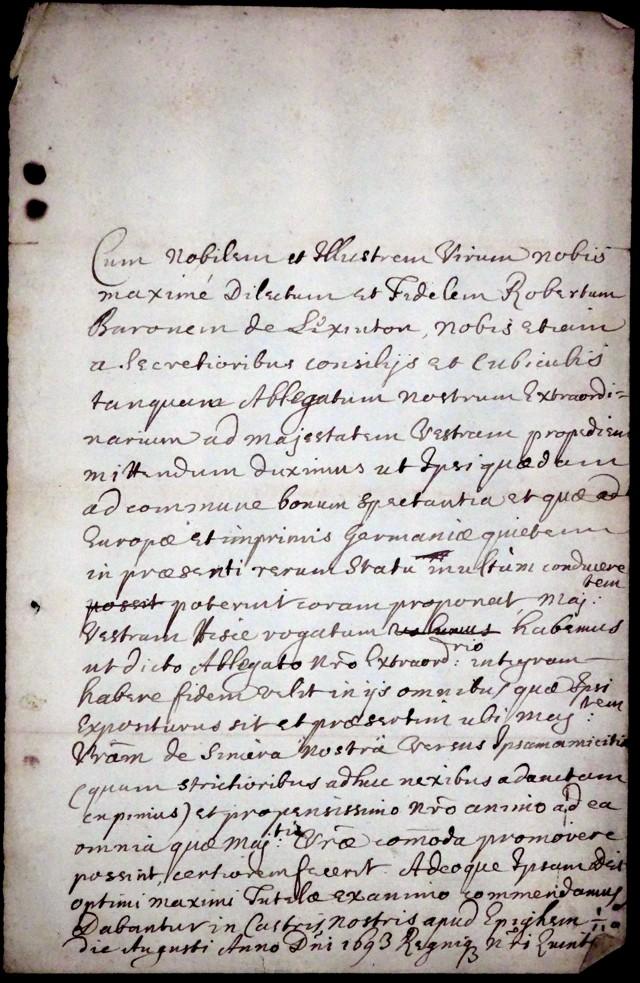 Cum Nobilem et Illustrem Virum nobis
maximé Dilectum et Fidelem Robertum
Baronem de Lexinton, nobis etiam
a Secretioribus consilijs et Cubiculis
tanquam Ablegatum nostrum Extraordi=
narium ad Majestatem Vestram propediem
mittendum duximus ut Ipsi quædam
ad commune bonum spectantia et quæ ad
Europæ et imprimis Germaniæ quietem
in præsenti rerum Statu multùm conducere
possit poterint coram proponat Maj:tem
Vestram rogatum volumus habemus
ut dicto Ablegato Nrõ Extraord:rio integram
habere fidem velit in ijs omnibus quæ Ipsi
Expositurus sit et præsertim ubi Maj:tem
Vrãm de Sincera Nostrâ Versus Ipsam amicitiâ
(quam strictioribus adhuc nexibus adauctam
cupimus) et propensissimo Nrõ animo ad ea
omnia quæ Maj:tis Vræ com̃oda promovere
possint certiorem fecerit. Adeoque Ipsam Dei
optimi maximi Tutelæ ex animo commendamus
Dabantur in Castris nostris apud
die Augusti Anno Dñi 1693 Regniq Nr̃i Quinto